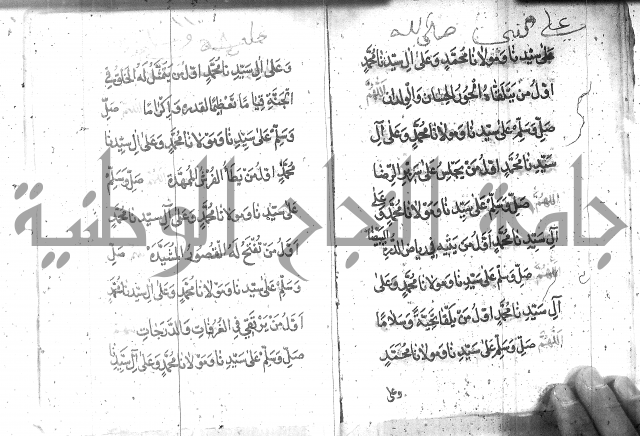 صلى الله
على سيدنا ومولانا محمد وعلى آل سيدنا محمد
اول من يتلقاه الحور الحسان والولدان اللهم
صل وسلم على سيدنا ومولانا محمد وعلى آل
سيدنا محمد اول من يجلس على سرير الرضا
اللهم صل وسلم على سيدنا ومولانا محمد وعلى
آل سيدنا محمد اول من يتيه في رياض الدرة البيضا
اللهم صل وسلم على سيدنا ومولانا محمد وعلى
آل سيدنا محمد اول من يلقا تحية وسلاما
اللهم صل وسلم على سيدنا ومولانا محمد
وعلى
وعلى آل سيدنا محمد اول من يتمثل له الخلق في
الجنة قياما تعظيما لقدره واكراما صل
وسلم على سيدنا ومولانا محمد وعلى آل سيدنا
محمد اول من يطأ الفرش الممهدة صل وسلم
على سيدنا ومولانا محمد وعلى آل سيدنا محمد
اول من تفتح له القصور المشيدة صل
وسلم على سيدنا ومولانا محمد وعلى آل سيدنا محمد
اول من يرتقي في الغرفات والدرجات
صل وسلم على سيدنا ومولانا محمد وعلى آل سيدنا
جامعة النجاح الوطنية